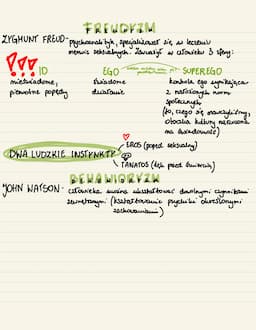 FREUDYZM
ZYGMUNT FREUD - psychoanalityk, specjalizował się w leczeniu
nerwic seksualnych. Zauważył w człowieku 3 sfery:
!!! ID EGO SUPEREGO
nieświadome, świadome kontrola ego wynikająca
pierwotne popędy działanie z narzuconych norm
społecznych
(to, czego się nauczyliśmy,
obłuda kultury narzucona
na świadomość)
DWA LUDZKIE INSTYNKTY
EROS (popęd seksualny)
TANATOS (lęk przed śmiercią)
BEHAWIORYZM
JOHN WATSON - człowieka można ukształtować dowolnymi czynnikami
zewnętrznymi (kształtowanie psychiki określonymi
zachowaniami)